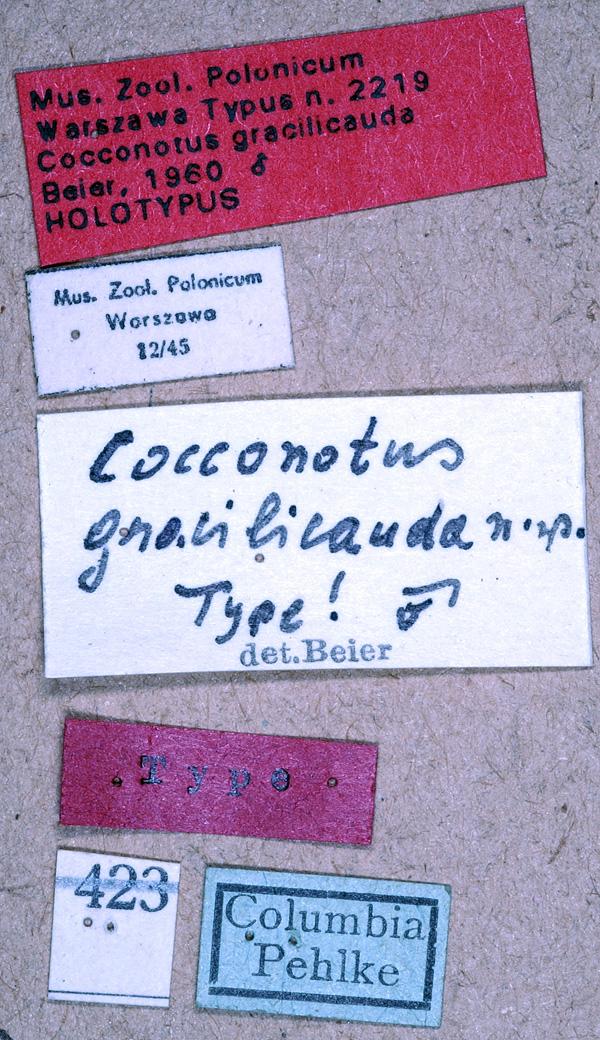 Mus. Zool. Polonicum
Warszawa Typus n. 2219
Cocconotus gracilicauda
Beier, 1960 ♂
HOLOTYPUS
Mus. Zool. Polonicum
Warszawa
12/45
Cocconotus
gracilicauda n. sp.
Type! ♂
det. Beier
Type
423
Columbia
Pehlke